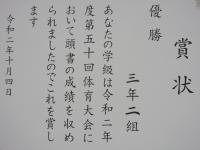 賞状
優勝
三年二組
あなたの学級は令和二年
度第五十回体育大会に
おいて頭書の成績を収め
られましたのでこれを賞し
ます
令和二年十月四日